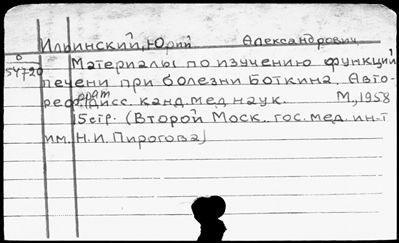 Ильинский, Юрий Александрович
О
54720
Материалы по изучению функций
печени при болезни Боткина. Авто-
реферат (дисс. канд. мед наук. М., 1958
15 стр. (Второй Моск. гос. мед. ин-т
им. Н. И. Пирогова)